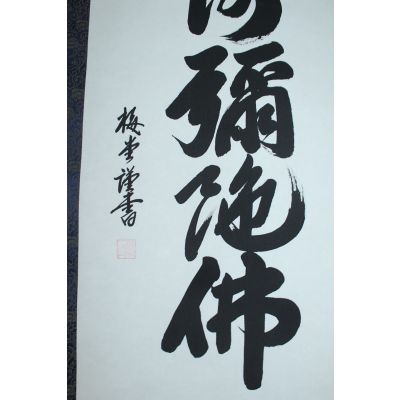 阿彌陀佛
梅堂謹書